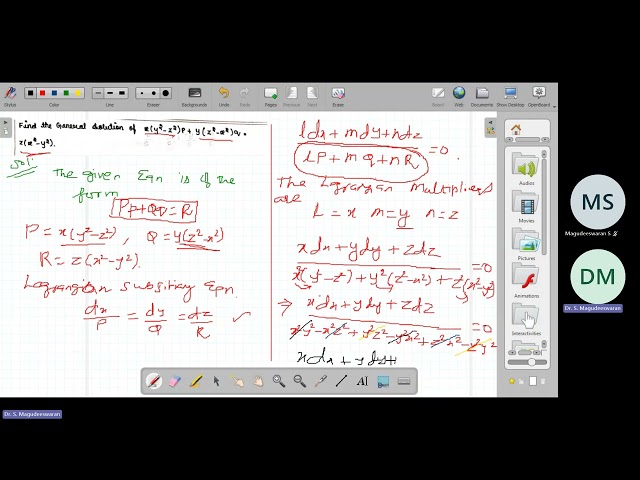 Stylus
Colors
Line
Eraser
Backgrounds
Undo
Redo
Pages
Previous
Next
Erase
Web
Documents
Show Desktop
OpenBoard
Find the General solution of x(y²-z²)p+y(z²-x²)q=
z(x²-y²).
Sol:
The given Eqn is of the
form
Pp+Qq=R
P = x(y²-z²), Q = y(z²-x²)
R = z(x²-y²).
dx/P = dy/Q = dz/R ✓
ldx+mdy+ndz / lP+mQ+nR = 0.
The Lagrangian Multipliers
are
l = x m=y n=z
xdx+ydy+zdz / x²(y²-z²)+y²(z²-x²)+z²(x²-y²) = 0
⇒ xdx+ydy+zdz / x²y²-x²z²+y²z²-y²x²+z²x²-z²y² = 0
xdx+ydy+
Audios
Movies
Pictures
Animations
Interactivities
MS
Magudeeswaran S
DM
Dr. S. Magudeeswaran
Dr. S. Magudeeswaran